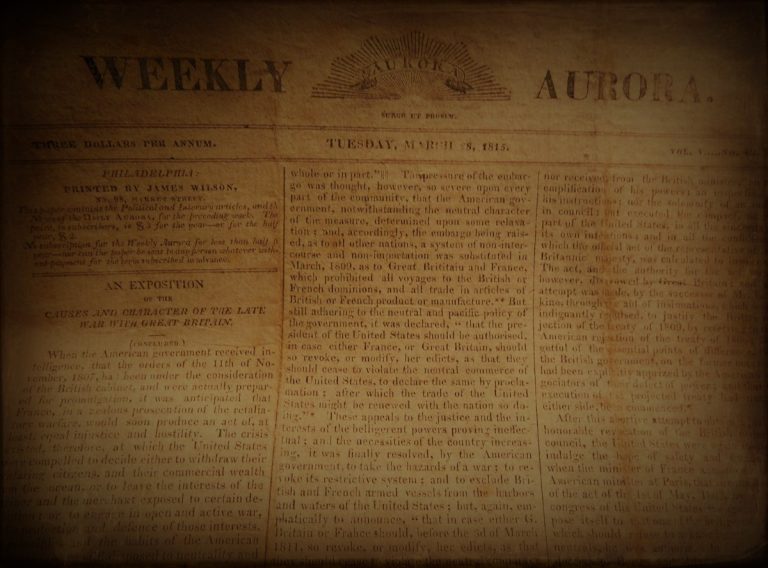 WEEKLY AURORA AURORA.
SURGO UT PROSIM.
THREE DOLLARS PER ANNUM. TUESDAY, MARCH 8, 1815. VOL.
PHILADELPHIA:
PRINTED BY JAMES WILSON,
MARKET STREET.
This paper contains the Political and Literary articles, and the
News of the DAILY AURORA, for the preceding week. The
price, to subscribers, is $3 for the year—or for the half
year, $2.
No subscription for the Weekly Aurora for less than half a
AN EXPOSITION
OF THE
CAUSES AND CHARACTER OF THE LATE
WAR WITH GREAT BRITAIN.
(CONTINUED)
When the American government received in-
telligence, that the orders of the 11th of No-
vember, 1807, had been under the consideration
of the British cabinet, and were actually prepar-
ed for promulgation, it was anticipated that
France, in a zealous prosecution of the retalia-
tory warfare, would soon produce an act of, at
least, equal injustice and hostility. The crisis
existed, therefore, at which the United States
were compelled to decide either to withdraw their
citizens, and their commercial wealth
ocean, or to leave the interests of the
and the merchant exposed to certain de-
or, to engage in open and active war,
and defence of those interests.
and the habits of the American
disposed to neutrality and
whole or in part." The pressure of the embar-
go was thought, however, so severe upon every
part of the community, that the American gov-
ernment, notwithstanding the neutral character
of the measure, determined upon some relaxa-
tion; and, accordingly, the embargo being rais-
ed, as to all other nations, a system of non-inter-
course and non-importation was substituted in
March, 1809, as to Great Brititain and France,
which prohibited all voyages to the British or
French dominions, and all trade in articles of
British or French product or manufacture.** But
still adhering to the neutral and pacific policy of
the government, it was declared, "that the pre-
sident of the United States should be authorised,
in case either France, or Great Britain, should
so revoke, or modify, her edicts, as that they
should cease to violate the neutral commerce of
the United States, to declare the same by procla-
mation; after which the trade of the United
States might be renewed with the nation so do-
ing."* These appeals to the justice and the in-
terests of the belligerent powers proving ineffec-
tual; and the necessities of the country increas-
ing, it was finally resolved, by the American
government, to take the hazards of a war; to re-
voke its restrictive system; and to exclude Bri-
tish and French armed vessels from the harbors
and waters of the United States; but, again, em-
phatically to announce, "that in case either G.
Britain or France should, before the 3d of March
1811, so revoke, or modify, her edicts, as that
nor received from the British
of his powers
his instructions; nor the solemnity of
in council; but executed the compact, on the
part of the United States, in all the
of its own institutions; and in all the confidence,
which the official act of the representative of his
Britannic majesty, was calculated to
The act, and the authority for the act, were,
however, disavowed by Great Britain; and an
attempt was made, by the successor of Mr.
king, through the aid of insinuations, which were
indignantly repulsed, to justify the British re-
jection of the treaty of 1809, by referring to the
American rejection of the treaty of
of the essential points of difference,
the British government, on the former
had been explicitly apprized by the American ne-
gociators of their defect of power; and that the
execution of the projected treaty had not, on
either side, been commenced.*
After this abortive attempt to obtain a just and
honorable revocation of the British orders in
council, the United States were
indulge the hope of safety and
when the minister of France
American minister at Paris, that
of the act of the 1st of May,
congress of the United States